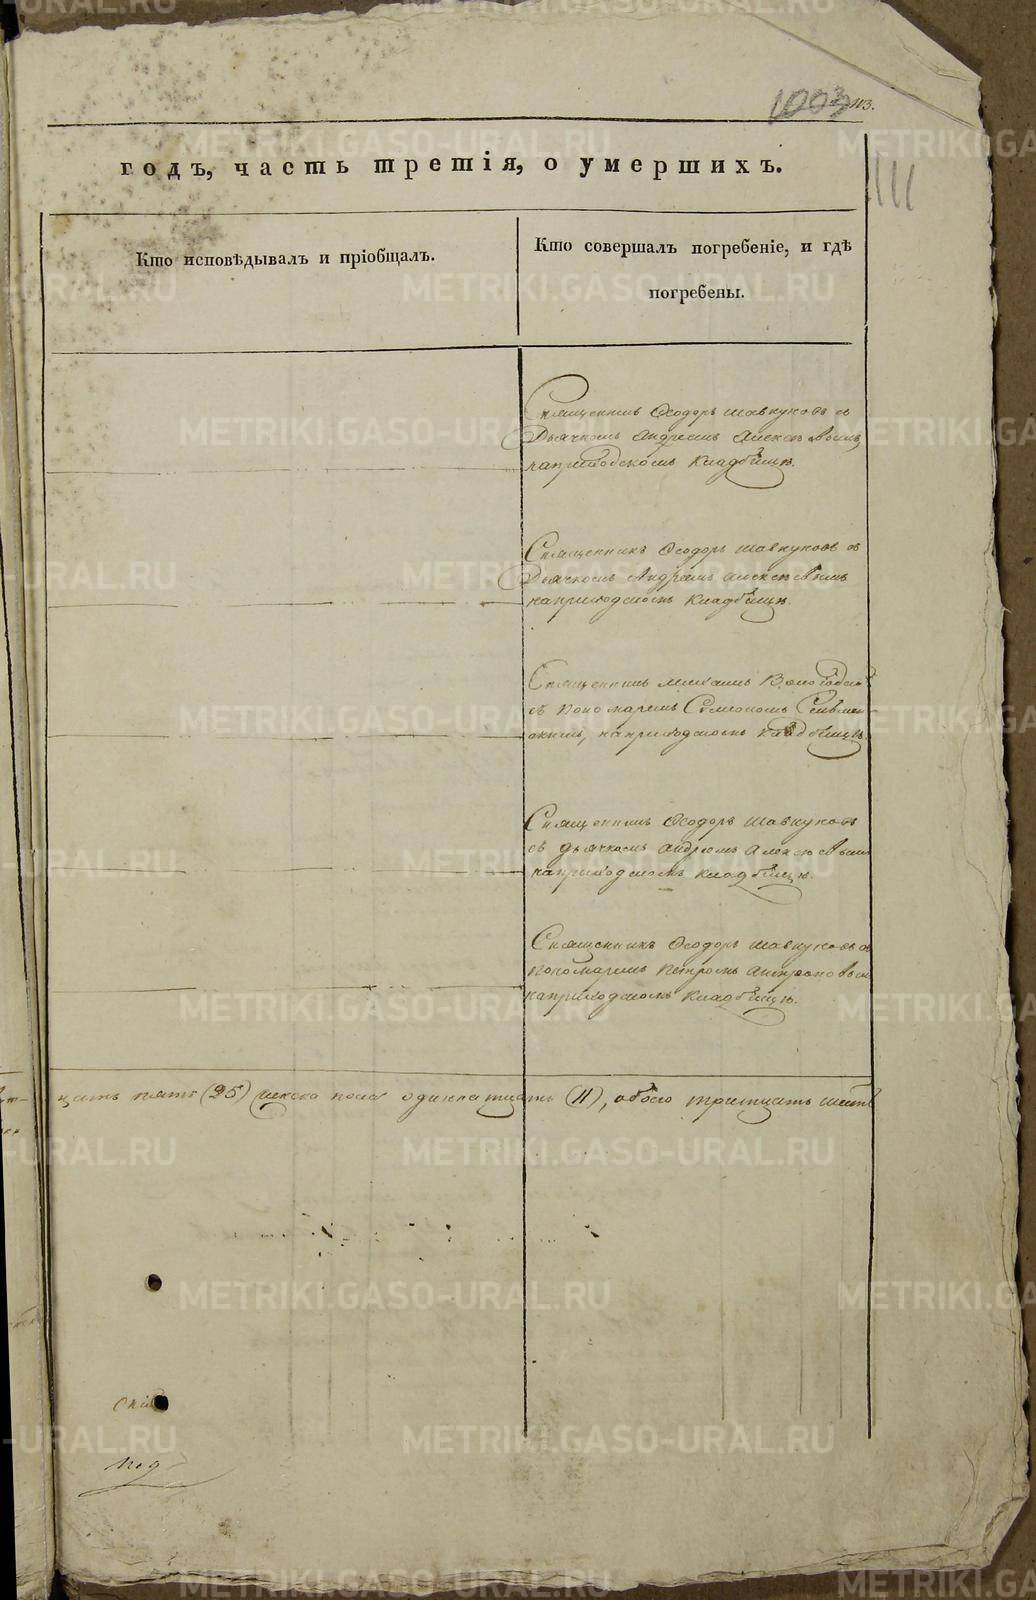 1003 113.
111
годъ, часть третія, о умершихъ.
Кто исповѣдывалъ и пріобщалъ.
Кто совершалъ погребеніе, и гдѣ
погребены.
Священникъ Ѳеодоръ Шавкуновъ съ
Дьячкомъ Андреемъ Алексѣевымъ,
на приходскомъ кладбищѣ.
Священникъ Ѳеодоръ Шавкуновъ съ
Дьячкомъ Андреемъ Алексѣевымъ
на приходскомъ кладбищѣ.
Священникъ Михаилъ
съ пономаремъ Симеономъ
на приходскомъ кладбищѣ.
Священникъ Ѳеодоръ Шавкуновъ
съ дьячкомъ Андреемъ Алексѣевымъ
на приходскомъ кладбищѣ.
Священникъ Ѳеодоръ Шавкуновъ съ
пономаремъ Петромъ
на приходскомъ кладбищѣ.
цать пять (25) женска пола одиннатцать (11), обоего тритцать шесть
METRIKI.GASO-URAL.RU